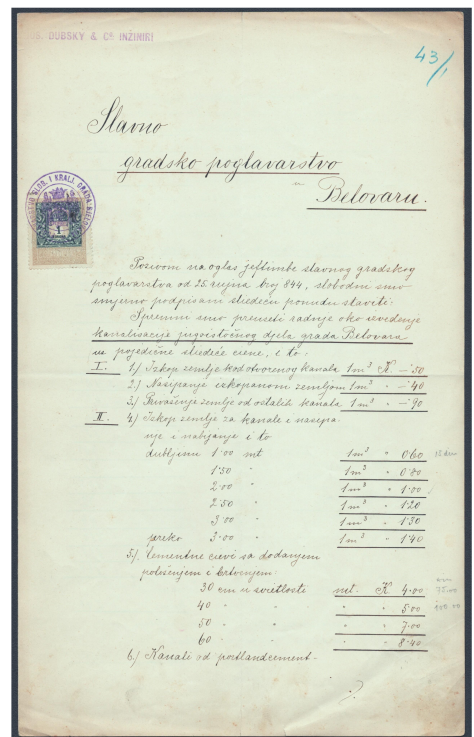 DUBSKY & Co INŽINIRI
43/1
Slavno
gradsko poglavarstvo
u
Belovaru.
SLOB. I KRALJ. GRADA
1
Pozivom na oglas jeftimbe slavnog gradskog
poglavarstva od 25. rujna broj 844, slobodni smo
smjerno podpisani sliedeću ponudu staviti:
Spremni smo preuzeti radnje oko izvedenje
kanalisacije jugoistočnog djela grada Belovara
uz pojedične sliedeće ciene, i to:
I. 1) Izkop zemlje kod otvorenog kanala 1 m³ K -·50
2) Nasipanje izkopanom zemljom 1 m³ " -·40
3) zemlje od ostalih kanala 1 m³ " -·90
II. 4) Izkop zemlje za kanale i nasipa-
nje i nabijanje i to
dubljinu 1·00 mt 1 m³ " 0·60
1·50 " 1 m³ " 0·80
2·00 " 1 m³ " 1·00
2·50 " 1 m³ " 1·20
3·00 " 1 m³ " 1·30
preko 3·00 " 1 m³ " 1·40
5) Cementne cievi sa dodanjem
položenjem i brtvenjem:
30 cm u svietlosti mt. K 4·00
40 " " " " 5·00
50 " " " " 7·00
60 " " " " 8·40
6) Kanali od portlandcement-